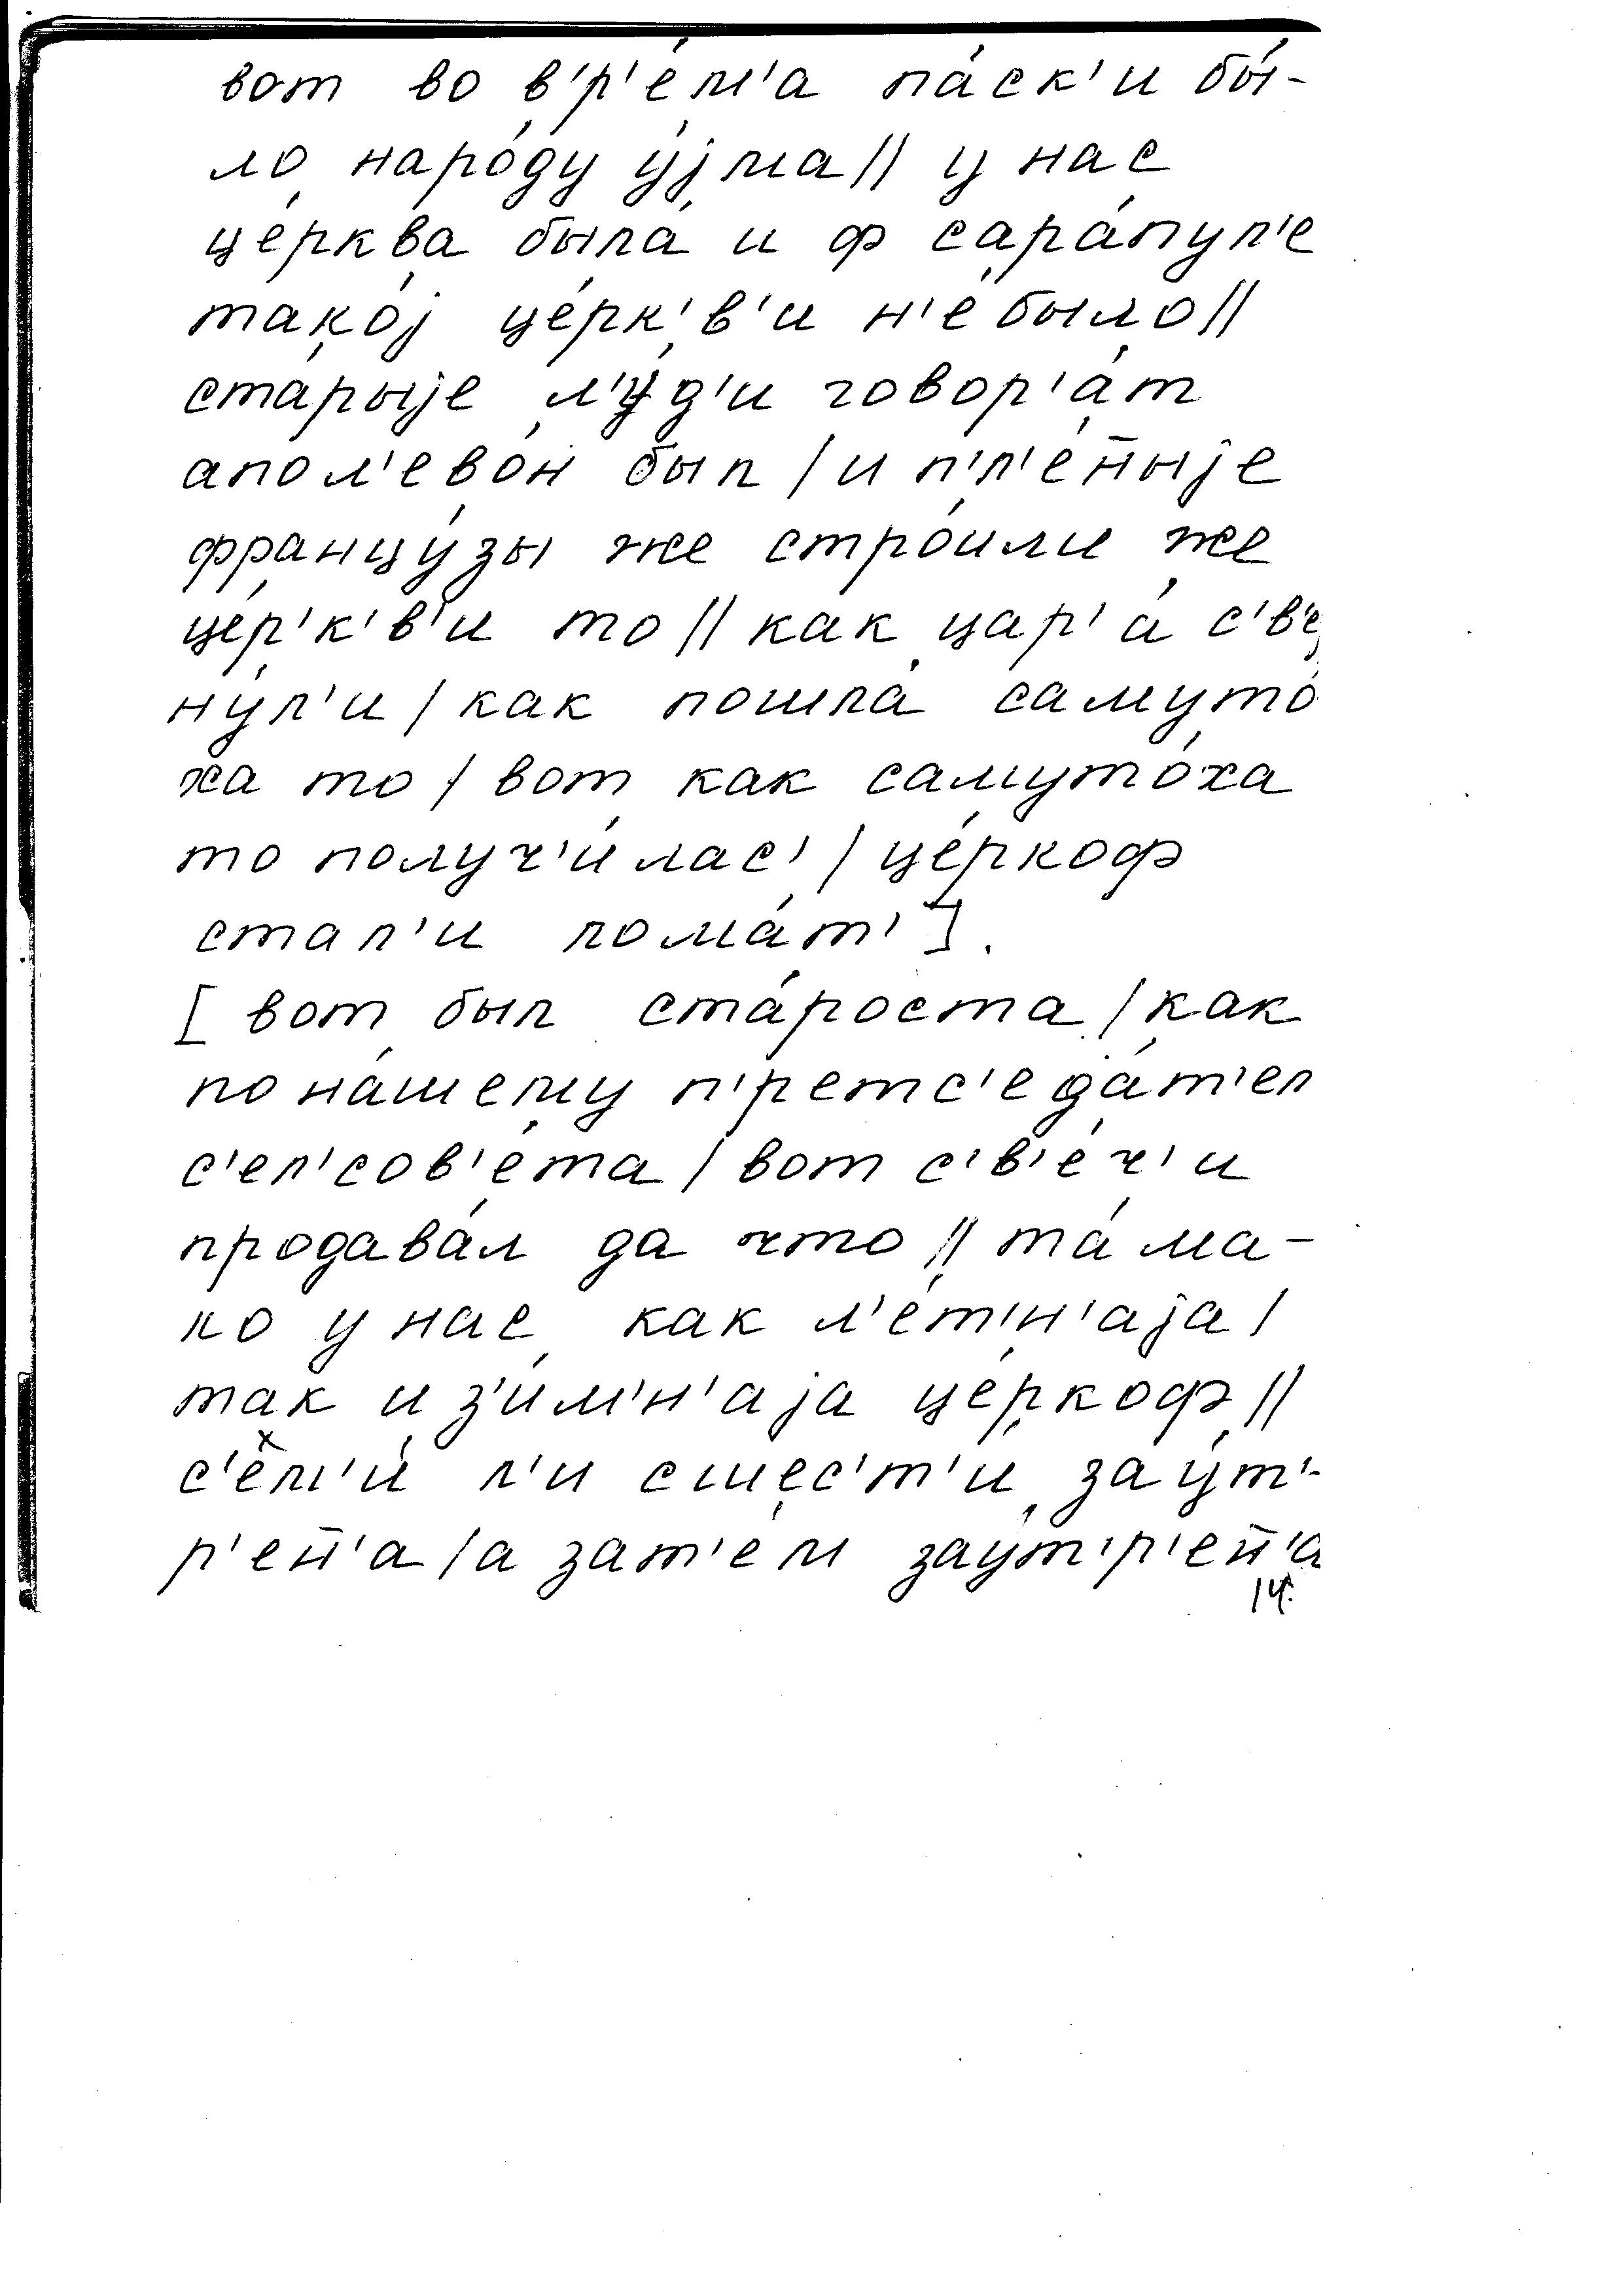 вот во в'р'е́м'а па́ск'и бы́-
ло наро́ду у́jма // у нас
це́рква была́ и ф сара́пул'е
тако́j це́рк'в'и н'е́ было //
ста́рыjе л'у́д'и говор'а́т
апол'ево́н был / и п'л'е́н̄ыjе
францу́зы же стро́или же
це́р'к'в'и то // как цар'а́ с'в'е,
ну́л'и / как пошла́ самуто́
ха то / вот как самуто́ха
то получ'и́лас' / це́ркоф
стал'и лома́т'].
[ вот был ста́роста / как
по на́шему п'ретс'еда́т'ел
с'ел'сов'е́та / вот с'в'е́ч'и
продава́л да что // та́ма-
ко у нас как л'е́т'н'аjа /
так и з'и́м'н'аjа це́ркоф //
с'ем'и́ л'и сшес'т'и́ зау́т'-
р'ен̄'а / а зат'е́м зау́т'р'ен̄'а
14.